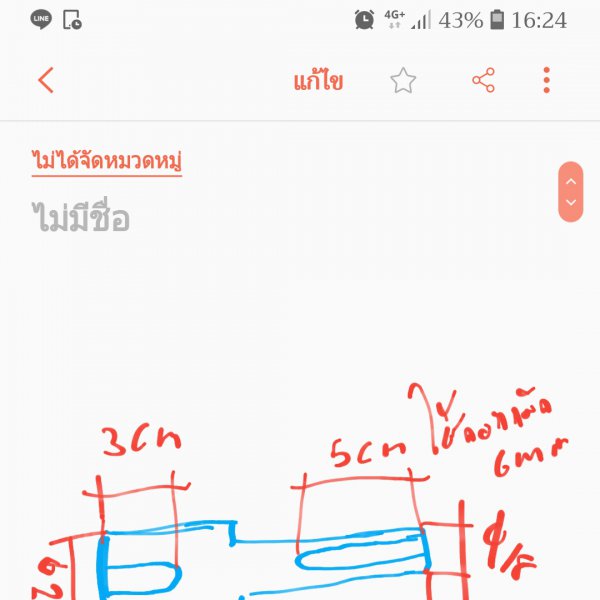 LINE 4G+ 43% 16:24
แก้ไข
ไม่ได้จัดหมวดหมู่
ไม่มีชื่อ
3cm
5cm
ใช้ดอกเม็ด
6mm